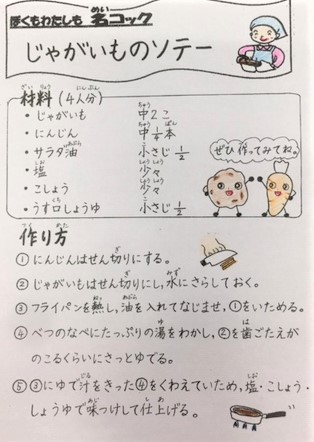 ぼくもわたしも 名コック
じゃがいものソテー
材料(4人分)
・じゃがいも 中2こ
・にんじん 中1/4本
・サラダ油 小さじ1/2
・塩 少々
・こしょう 少々
・うす口しょうゆ 小さじ1/2
ぜひ作ってみてね。
作り方
①にんじんはせん切りにする。
②じゃがいもはせん切りにし、水にさらしておく。
③フライパンを熱し、油を入れてなじませ、①をいためる。
④べつのなべにたっぷりの湯をわかし、②を歯ごたえが
のこるくらいにさっとゆでる。
⑤③にゆで汁をきった④をくわえていため、塩・こしょう・
しょうゆで味つけして仕上げる。